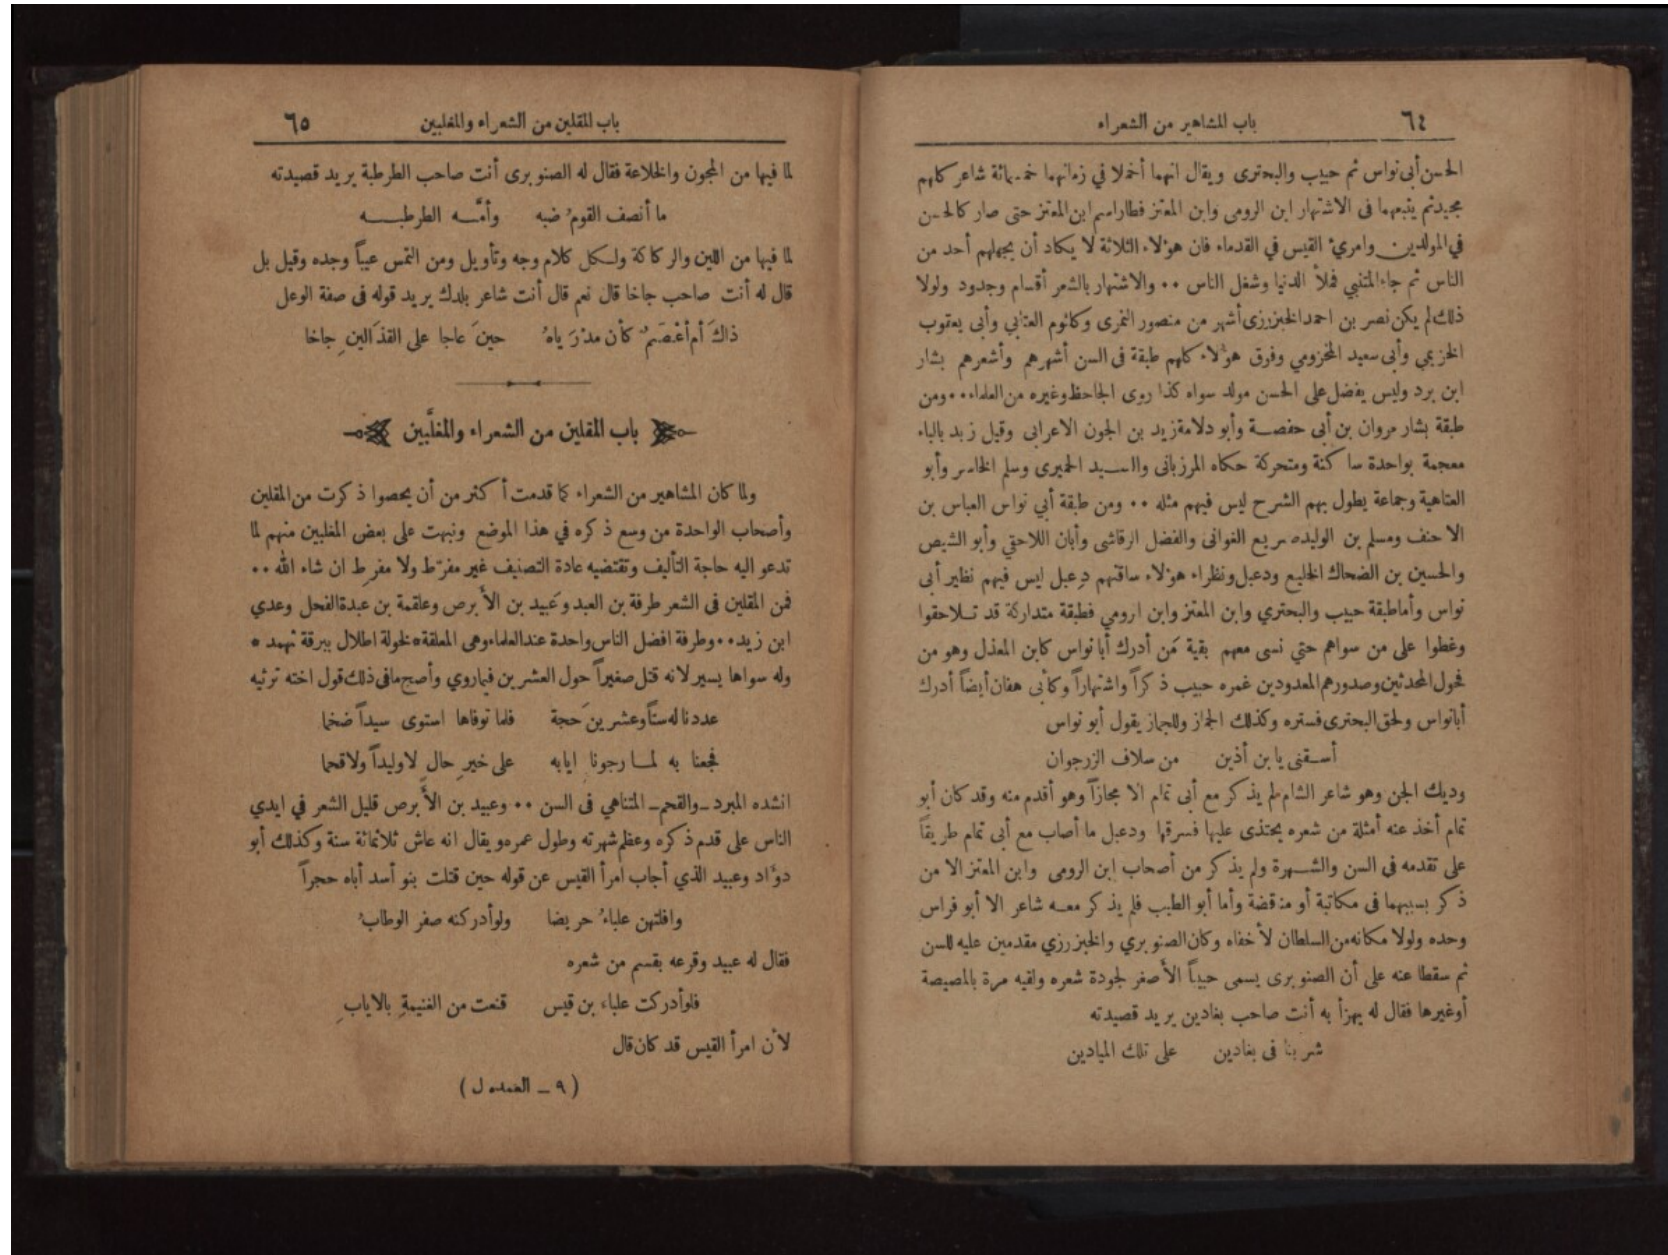 ٦٤
باب المشاهير من الشعراء
الحسن أبى نواس ثم حبيب والبحترى ويقال انهما أخملا في زمانهما خمسمائة شاعر كلهم
مجيد ثم يتبعهما فى الاشتهار ابن الرومى وابن المعتز فطار اسم ابن المعتز حتى صار كالحسن
في المولدين وامرئ القيس في القدماء فان هؤلاء الثلاثة لا يكاد أن يجهلهم أحد من
الناس ثم جاء المتنبي فملأ الدنيا وشغل الناس ٠٠ والاشتهار بالشعر أقسام وجدود ولولا
ذلك لم يكن نصر بن احمد الخبزرزى أشهر من منصور النمرى وكلثوم العتابي وأبى يعقوب
الخزيمي وأبى سعيد المخزومي وفرق هؤلاء كلهم طبقة فى السن أشهرهم وأشعرهم بشار
ابن برد وليس يفضل على الحسن مولد سواه كذا روى الجاحظ وغيره من العلماء ٠٠ ومن
طبقة بشار مروان بن أبى حفصـة وأبو دلامة زيد بن الجون الاعرابى وقيل زبد بالباء
معجمة بواحدة ساكنة ومتحركة حكاه المرزبانى والسـيد الحميرى وسلم الخاسر وأبو
العتاهية وجماعة يطول بهم الشرح ليس فيهم مثله ٠٠ ومن طبقة أبي نواس العباس بن
الاحنف ومسلم بن الوليد صريع الغوانى والفضل الرقاشى وأبان اللاحقي وأبو الشيص
والحسين بن الضحاك الخليع ودعبل ونظراء هؤلاء ساقتهم دعبل ليس فيهم نظير أبى
نواس وأما طبقة حبيب والبحتري وابن المعتز وابن الرومي فطبقة متداركة قد تـلاحقوا
وغطوا على من سواهم حتي نسى معهم بقية مَن أدرك أبا نواس كابن المعذل وهو من
فحول المحدثين وصدورهم المعدودين غمره حبيب ذكراً واشتهاراً وكأبى هفان أيضاً أدرك
أبانواس ولحق البحترى فستره وكذلك الجماز وللجماز يقول أبو نواس
أسـقنى يا بن أذين من سلاف الزرجوان
وديك الجن وهو شاعر الشام لم يذكر مع أبى تمام الا مجازاً وهو أقدم منه وقد كان أبو
تمام أخذ عنه أمثلة من شعره يحتذى عليها فسرقها ودعبل ما أصاب مع أبى تمام طريقاً
على تقدمه فى السن والشـهرة ولم يذكر من أصحاب ابن الرومى وابن المعتز الا من
ذكر بسببهما فى مكاتبة أو مناقضة وأما أبو الطيب فلم يذكر معـه شاعر الا أبو فراس
وحده ولولا مكانه من السلطان لأخفاه وكان الصنوبري والخبزرزي مقدمين عليه للسن
ثم سقطا عنه على أن الصنوبرى يسمى حبيباً الأصغر لجودة شعره ولقيه مرة بالمصيصة
أوغيرها فقال له يهزأ به أنت صاحب بغادين يريد قصيدته
شربنا فى بغادين على تلك الميادين
باب المقلين من الشعراء والمغلبين
٦٥
لما فيها من المجون والخلاعة فقال له الصنوبرى أنت صاحب الطرطبة يريد قصيدته
ما أنصف القومُ ضبه وأمّـه الطرطبـــه
لما فيها من اللين والركاكة ولـكل كلام وجه وتأويل ومن التمس عيباً وجده وقيل بل
قال له أنت صاحب جاخا قال نعم قال أنت شاعر بلدك يريد قوله فى صفة الوعل
ذاكَ أم أعْصَمٌ كأن مدْرَياهُ حينَ عاجا على القذَالينِ جاخا
باب المقلين من الشعراء والمغلَّبين
ولما كان المشاهير من الشعراء كما قدمت أكثر من أن يحصوا ذكرت من المقلين
وأصحاب الواحدة من وسع ذكره في هذا الموضع ونبهت على بعض المغلبين منهم لما
تدعو اليه حاجة التأليف وتقتضيه عادة التصنيف غير مفرّط ولا مفرِط ان شاء الله ٠٠
فمن المقلين فى الشعر طرفة بن العبد وعَبيد بن الأبرص وعلقمة بن عبدة الفحل وعدي
ابن زيد ٠٠ وطرفة افضل الناس واحدة عند العلماء وهى المعلقة * لخولة اطلال ببرقة ثهمد *
وله سواها يسير لانه قتل صغيراً حول العشرين فيما روي وأصح ما فى ذلك قول اخته ترثيه
عددنا له ستاً وعشرينَ حجة فلما توفاها استوى سيداً ضخما
فجعنا به لمـا رجونا إيابه على خيرِ حال لاوليداً ولاقحما
انشده المبرد ـ والقحم ـ المتناهي فى السن ٠٠ وعبيد بن الأبرص قليل الشعر في ايدي
الناس على قدم ذكره وعظم شهرته وطول عمره ويقال انه عاش ثلاثمائة سنة وكذلك أبو
دؤاد وعبيد الذي أجاب امرأ القيس عن قوله حين قتلت بنو أسد أباه حجراً
وافلتهن علباءُ حريضا ولوأدركنه صفر الوطابُ
فقال له عبيد وقرعه بقسم من شعره
فلوأدركت علباء بن قيس قنعت من الغنيمةِ بالايابِ
لأن امرأ القيس قد كان قال
( ٩ ـ العمده ل )